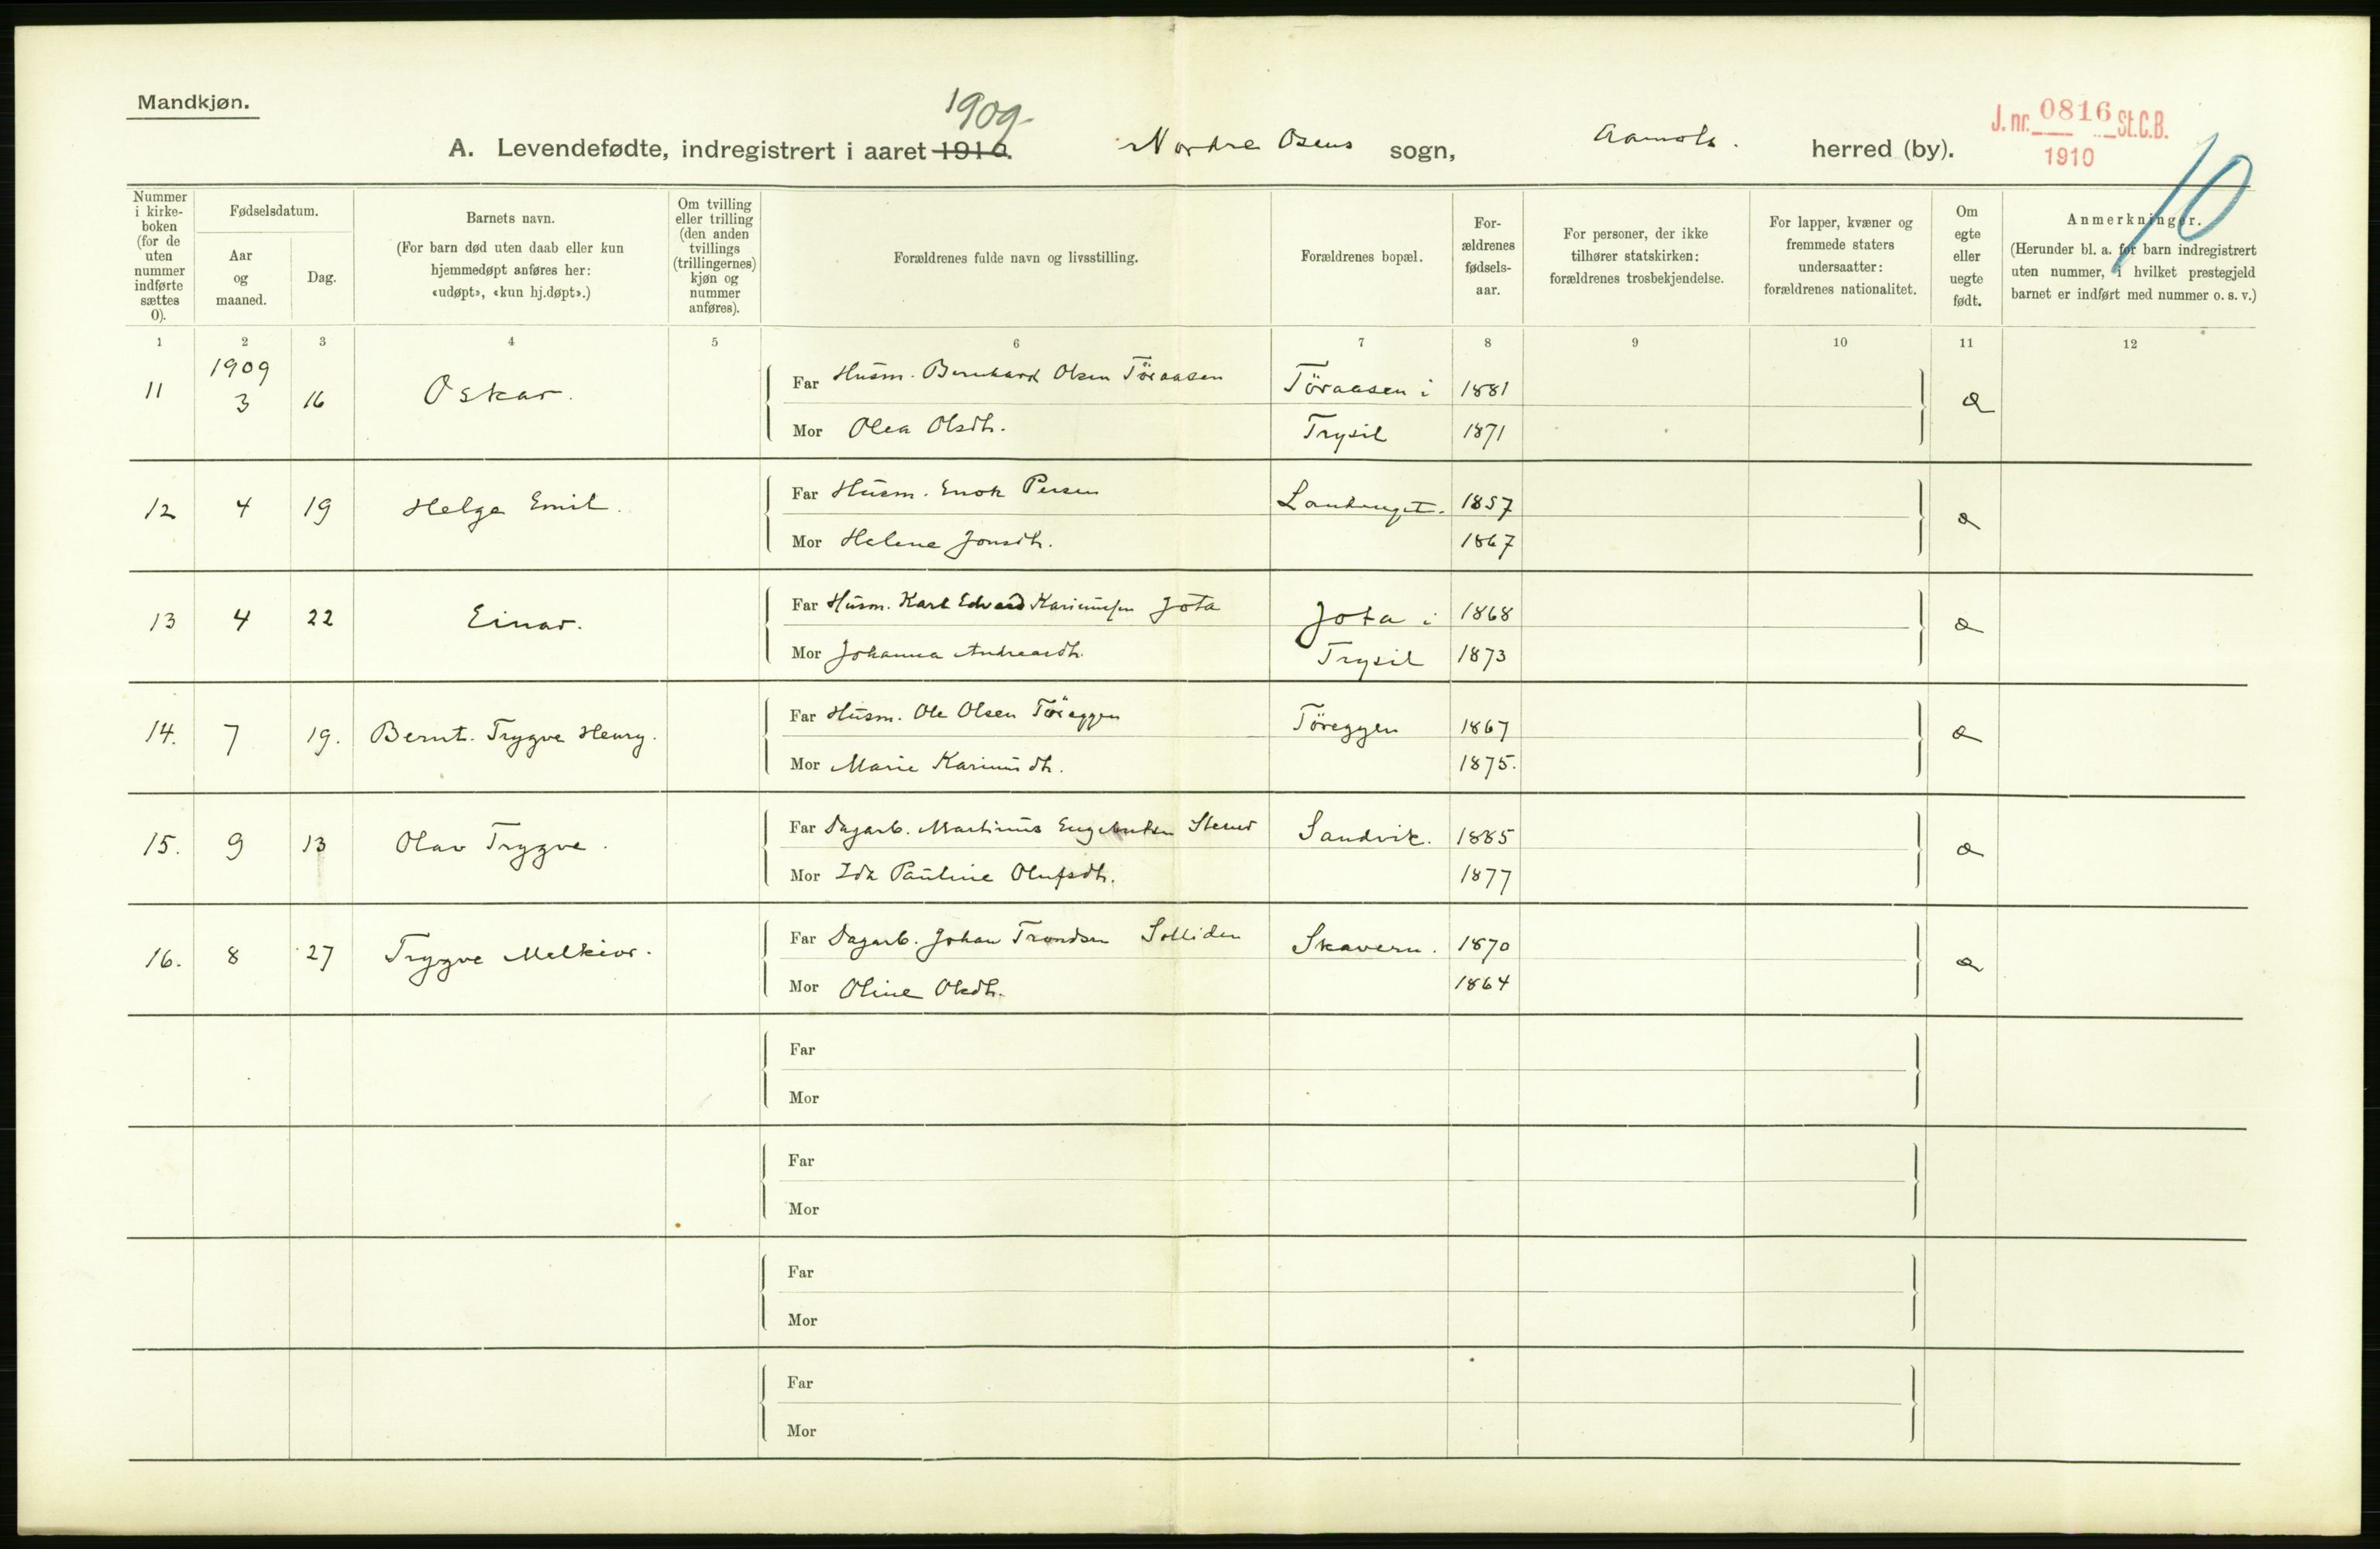 Mandkjøn.
1909
A. Levendefødte, indregistrert i aaret 1910. Nordre Osens sogn, Aamots. herred (by).
J. nr. 0816 St.C.B.
1910
10
Nummer i kirke-boken (for de uten nummer indførte sættes 0).
Fødselsdatum.
Aar og maaned.
Dag.
Barnets navn.
(For barn død uten daab eller kun
hjemmedøpt anføres her:
«udøpt», «kun hj.døpt».)
Om tvilling eller trilling (den anden tvillings (trillingernes) kjøn og nummer anføres).
Forældrenes fulde navn og livsstilling.
Forældrenes bopæl.
For-ældrenes fødsels-aar.
For personer, der ikke
tilhører statskirken:
forældrenes trosbekjendelse.
For lapper, kvæner og
fremmede staters
undersaatter:
forældrenes nationalitet.
Om egte eller uegte født.
Anmerkninger.
(Herunder bl. a. for barn indregistrert
uten nummer, i hvilket prestegjeld
barnet er indført med nummer o. s. v.)
1 2 3 4 5 6 7 8 9 10 11 12
1909
11 3 16 Oskar. Far Husm. Bernhard Olsen Töraasen Töraasen i 1881 e
Mor Olea Olsdtr. Trysil 1871
12 4 19 Helge Emil. Far Husm. Enok Persen 1857 e
Mor Helene Jonsdtr. 1867
13 4 22 Einar. Far Husm. Karl Edvard Jota Jota i 1868 e
Mor Johanna Andreasdtr. Trysil 1873
14. 7 19. Bernt Trygve Henry. Far Husm. Ole Olsen Töreggen Töreggen 1867 e
Mor Marie 1875.
15. 9 13 Olav Trygve. Far Dagarb. Martinus Engebretsen Sandvik. 1885 e
Mor Ida Pauline Olufsdtr. 1877
16. 8 27 Trygve Melkior. Far Dagarb. Johan Trondsen Solliden Skavern. 1870 e
Mor Oline Olsdtr. 1864
Far
Mor
Far
Mor
Far
Mor
Far
Mor